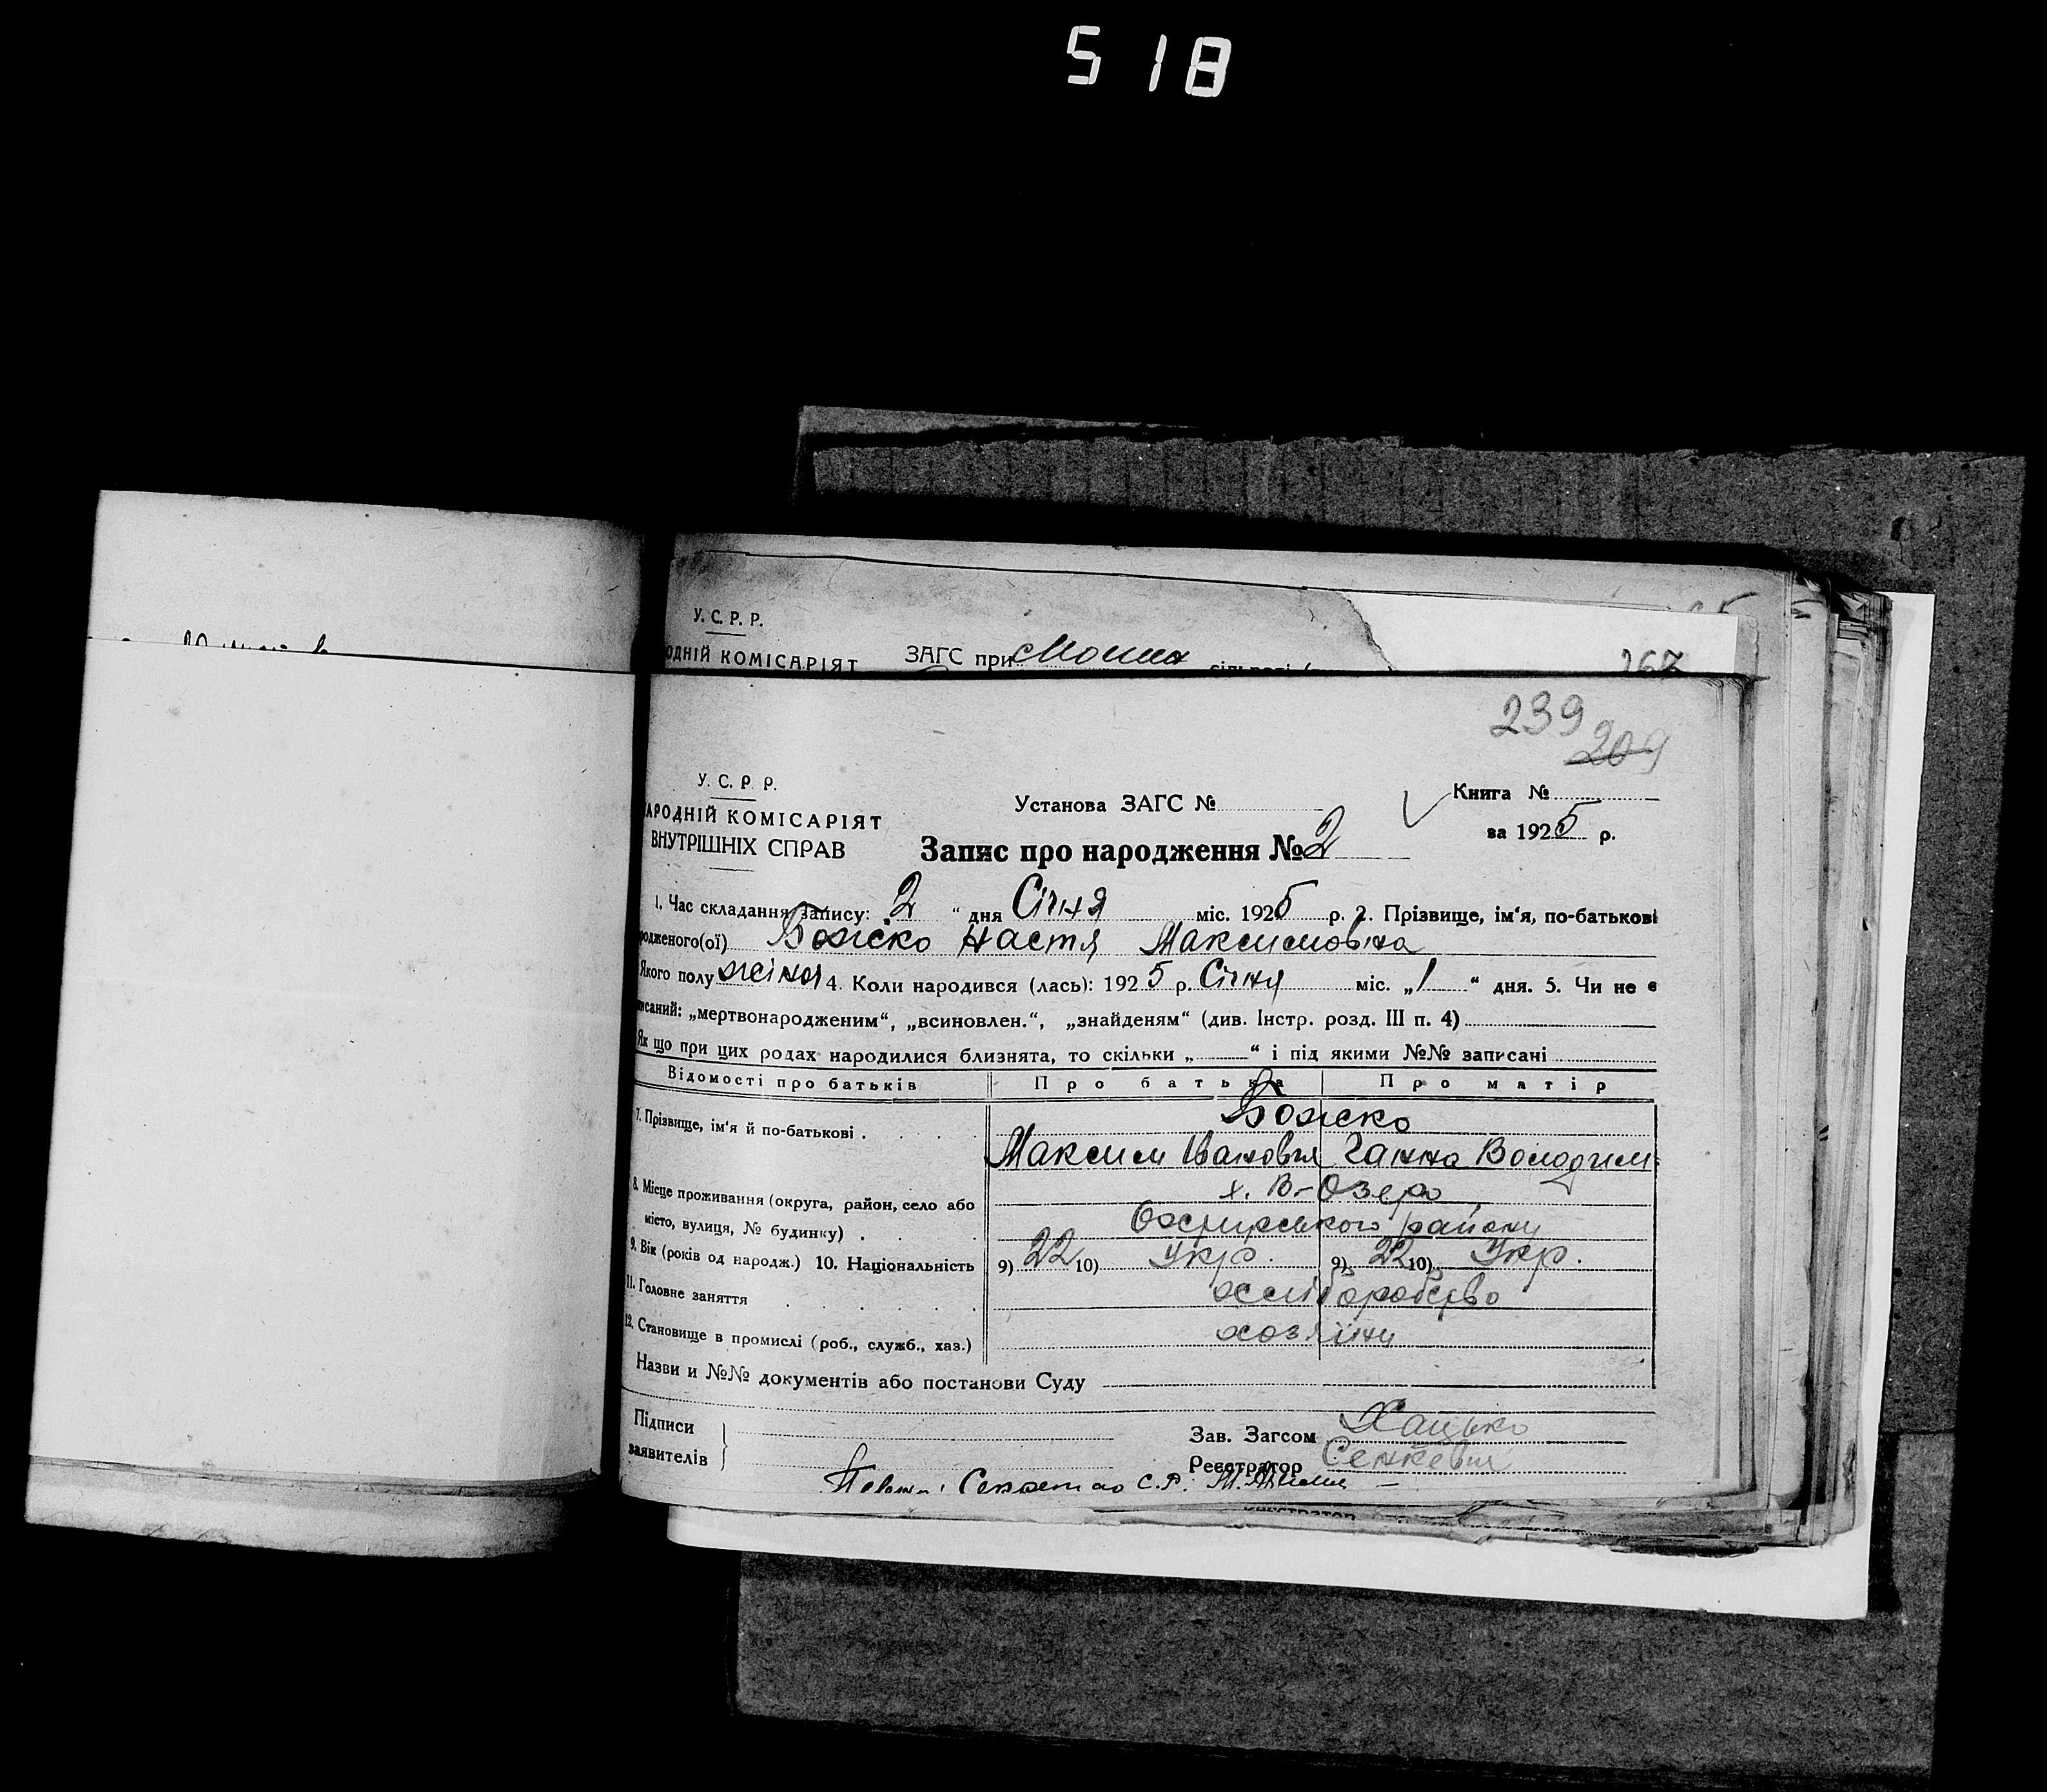 518
У. С. Р. Р.
ОДНІЙ КОМІСАРІЯТ ЗАГС при
267
239
209
У. С. Р. Р.
АРОДНІЙ КОМІСАРІЯТ
ВНУТРІШНІХ СПРАВ
Установа ЗАГС №
Книга №
за 1925 р.
Запис про народження № 2
1. Час складання запису: 2 “ дня Січня міс. 1925 р. 2. Прізвище, ім‘я, по-батькові
родженого(ої) Божко Настя Максимовна
Якого полу жіноч 4. Коли народився (лась): 1925 р. Січня міс. „1“ дня. 5. Чи не є
писаний: „мертвонародженим“, „всиновлен.“, „знайденям“ (див. Інстр. розд. III п. 4)
Як що при цих родах народилися близнята, то скільки „ “ і під якими №№ записані
Відомості про батьків Про батька Про матір
7. Прізвище, ім‘я й по-батькові . . . . . Божко
Максим Іванович Ганна Володим:
8. Місце проживання (округа, район, село або х. В-Озеро
місто, вулиця, № будинку) . . Охтирського району
9. Вік (років од народж.) 10. Національність 9) 22 10) Укр. 9) 22 10) Укр.
11. Головне заняття . . . . . хліборобство
12. Становище в промислі (роб., служб., хаз.) хозяїни
Назви и №№ документів або постанови Суду
Підписи
заявителів
Зав. Загсом Хацько
Реєстратор Сенкевич
Секретар С.Р.